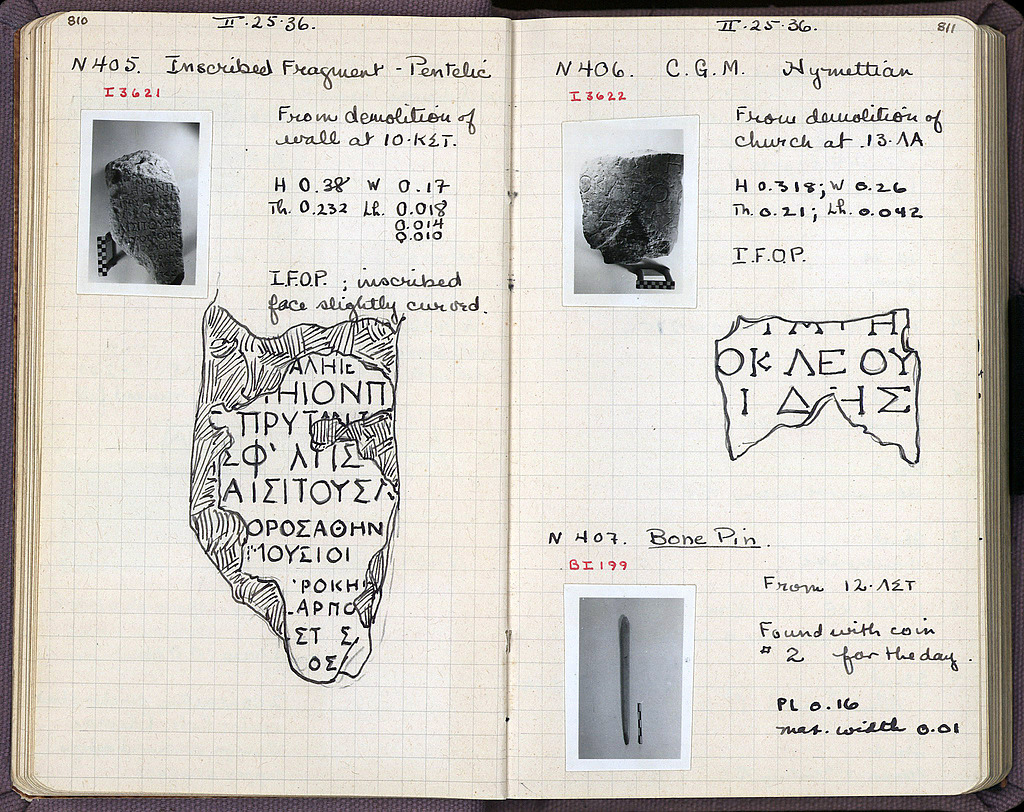 810
II·25·36.
N 405. Inscribed Fragment - Pentelic
I 3621
From demolition of
wall at 10·ΚΣΤ.
H 0.38 W 0.17
Th. 0.232 Lh. 0.018
0.014
0.010
I.F.O.P. ; inscribed
face slightly curved.
ΑΛΗΙΕ
ΗΙΟΝΠ
ΠΡΥΤΑΝ
ΣΦ
ΑΙΣΙΤΟΥΣΑ
ΟΡΟΣΑΘΗΝ
ΜΟΥΣΙΟΙ
ΡΟΚΗ
ΑΡΠΟ
ΣΤ Σ
ΟΣ
II·25·36.
811
N 406. C.G.M. Hymettian
I 3622
From demolition of
church at 13·ΛΑ
H 0.318; W 0.26
Th. 0.21; Lh. 0.042
I.F.O.P.
ΟΚΛΕΟΥ
ΙΔΗΣ
N 407. Bone Pin.
BI 199
From 12·ΛΣΤ
Found with coin
# 2 for the day.
PL 0.16
max. width 0.01